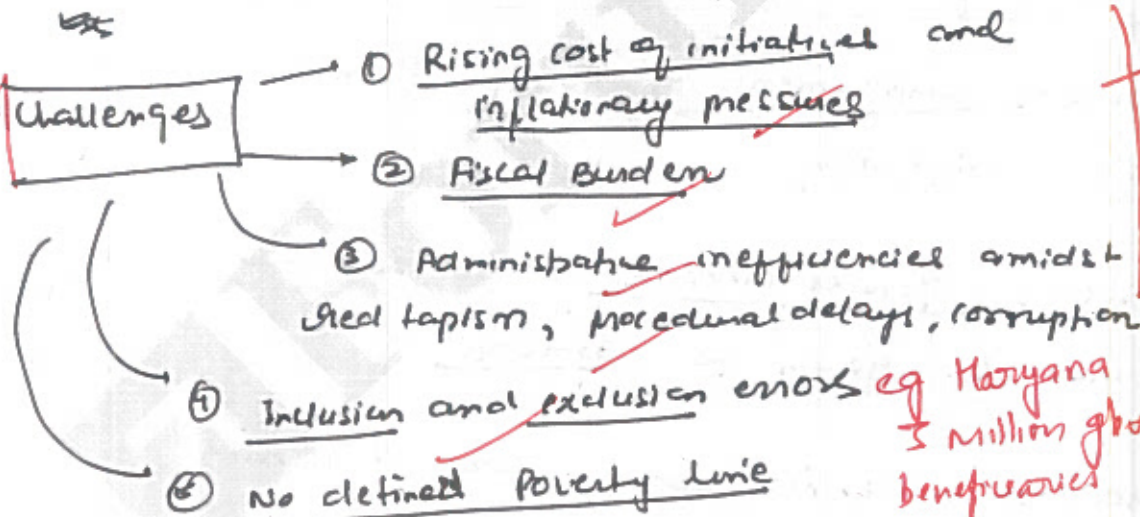 Challenges
① Rising cost of initiatives and
inflationary pressures
② Fiscal Burden
③ Administrative inefficiencies amidst
red tapism, procedural delays, corruption
④ Inclusion and exclusion errors eg Haryana
million
⑤ No defined Poverty line
beneficiaries